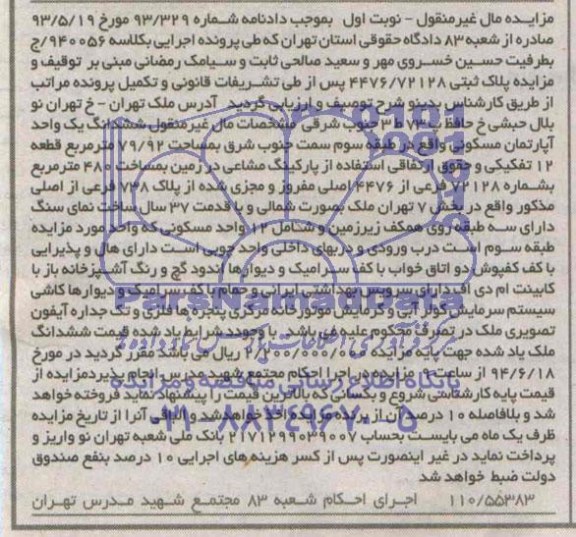 مزایده مال غیرمنقول - نوبت اول بموجب دادنامه شماره ۹۳/۳۲۹ مورخ ۹۳/۵/۱۹
صادره از شعبه ۸۳ دادگاه حقوقی استان تهران که طی پرونده اجرایی بکلاسه ۹۴۰۰۵۶/ج
بطرفیت حسین خسروی مهر و سعید صالحی ثابت و سیامک رمضانی مبنی بر توقیف و
مزایده پلاک ثبتی ۴۴۷۶/۷۲۱۲۸ پس از طی تشریفات قانونی و تکمیل پرونده مراتب
از طریق کارشناس بدینو شرح توصیف و ارزیابی گردید آدرس ملک تهران - خ تهران نو
بلال حبشی خ حافظ پ ۷۳ ط ۳ جنوب شرقی مشخصات مال غیرمنقول ششدانگ یک واحد
آپارتمان مسکونی واقع در طبقه سوم سمت جنوب شرق بمساحت ۷۹/۹۲ مترمربع قطعه
۱۲ تفکیکی و حقوق ارتفاقی استفاده از پارکینگ مشاعی در زمین بمساحت ۴۸۰ مترمربع
بشماره ۷۲۱۲۸ فرعی از ۴۴۷۶ اصلی مفروز و مجزی شده از پلاک ۷۳۸ فرعی از اصلی
مذکور واقع در بخش ۷ تهران ملک بصورت شمالی و با قدمت ۳۷ سال ساخت نمای سنگ
دارای سه طبقه روی همکف زیرزمین و شامل ۱۲ واحد مسکونی که واحد مورد مزایده
طبقه سوم است درب ورودی و دربهای داخلی واحد چوبی است دارای هال و پذیرایی
با کف کفپوش دو اتاق خواب با کف سرامیک و دیوارها اندود گچ و رنگ آشپزخانه باز با
کابینت ام دی اف دارای سرویس بهداشتی ایرانی و حمام با کف سرامیک و دیوارها کاشی
سیستم سرمایش کولر آبی و گرمایش موتورخانه مرکزی پنجره ها فلزی و تک جداره آیفون
تصویری ملک در تصرف محکوم علیه می باشد با وجود شرایط یاد شده قیمت ششدانگ
ملک یاد شده جهت پایه مزایده ۲/۲۰۰/۰۰۰/۰۰۰ ریال می باشد مقرر گردید در مورخ
۹۴/۶/۱۸ از ساعت مزایده در اجرا احکام مجتمع شهید مدرس انجام پذیرد مزایده از
قیمت پایه کارشناسی شروع و بکسانی که بالاترین قیمت را پیشنهاد نماید فروخته خواهد
شد و بلافاصله ۱۰ درصد آن از برنده مزایده اخذ خواهد شد و الباقی آنرا از تاریخ مزایده
ظرف یک ماه می بایست بحساب ۲۱۷۱۲۹۹۰۳۹۰۰۷ بانک ملی شعبه تهران نو واریز و
پرداخت نماید در غیر اینصورت پس از کسر هزینه های اجرایی ۱۰ درصد بنفع صندوق
دولت ضبط خواهد شد
۱۱۰/۵۵۳۸۳ اجرای احکام شعبه ۸۳ مجتمع شهید مدرس تهران
ParsNamadData
پایگاه اطلاع رسانی مناقصه و مزایده
۰۲۱-۸۸۳۴۹۶۷۰-۵